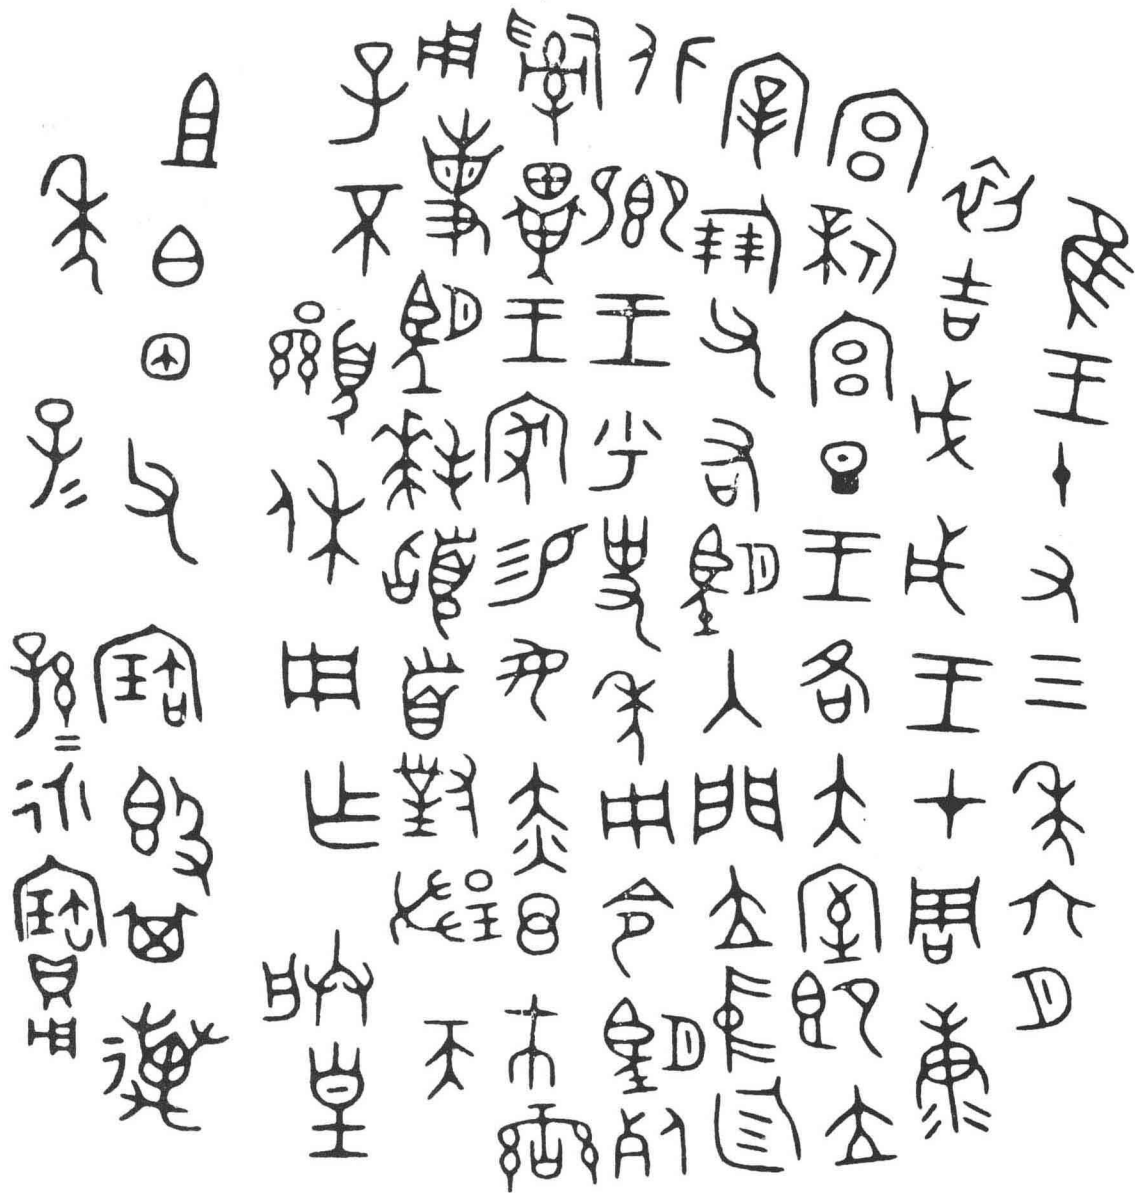 隹王十又三年六月
初吉戊戌王才周康
宮新宮旦王各大室即立
宰倗父右朢入門立中廷
北鄉王乎史年冊令朢死
𤔲畢王家易女赤市䜌
用事朢拜𩒨首對揚天
子不顯休用乍朕皇
且白父寶𣪘其萬
年子=孫=永寶用